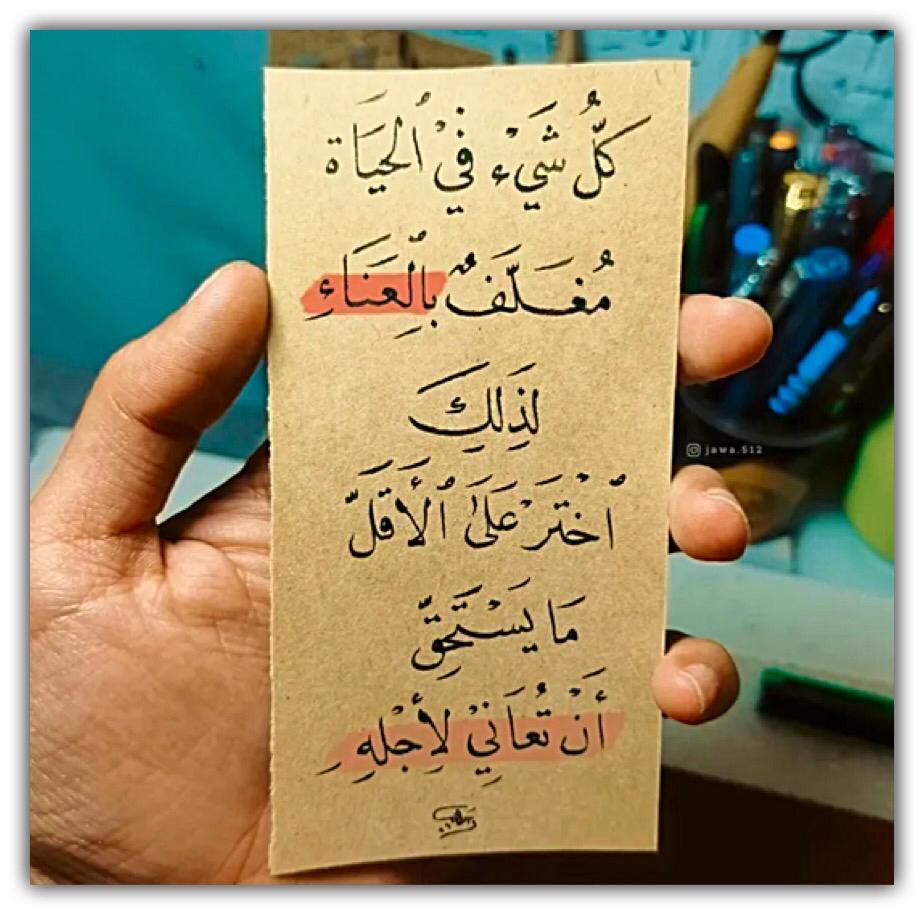 كُلُّ شَيْء فِي ٱلحَيَاة
مُغَلَّفٌ بِٱلعَنَاءِ
لِذَلِكَ
ٱخْتَرْ عَلَىٰ ٱلأَقَلّ
مَا يَسْتَحِقّ
أَنْ تُعَانِيْ لِأَجْلِهِ
jawa.512